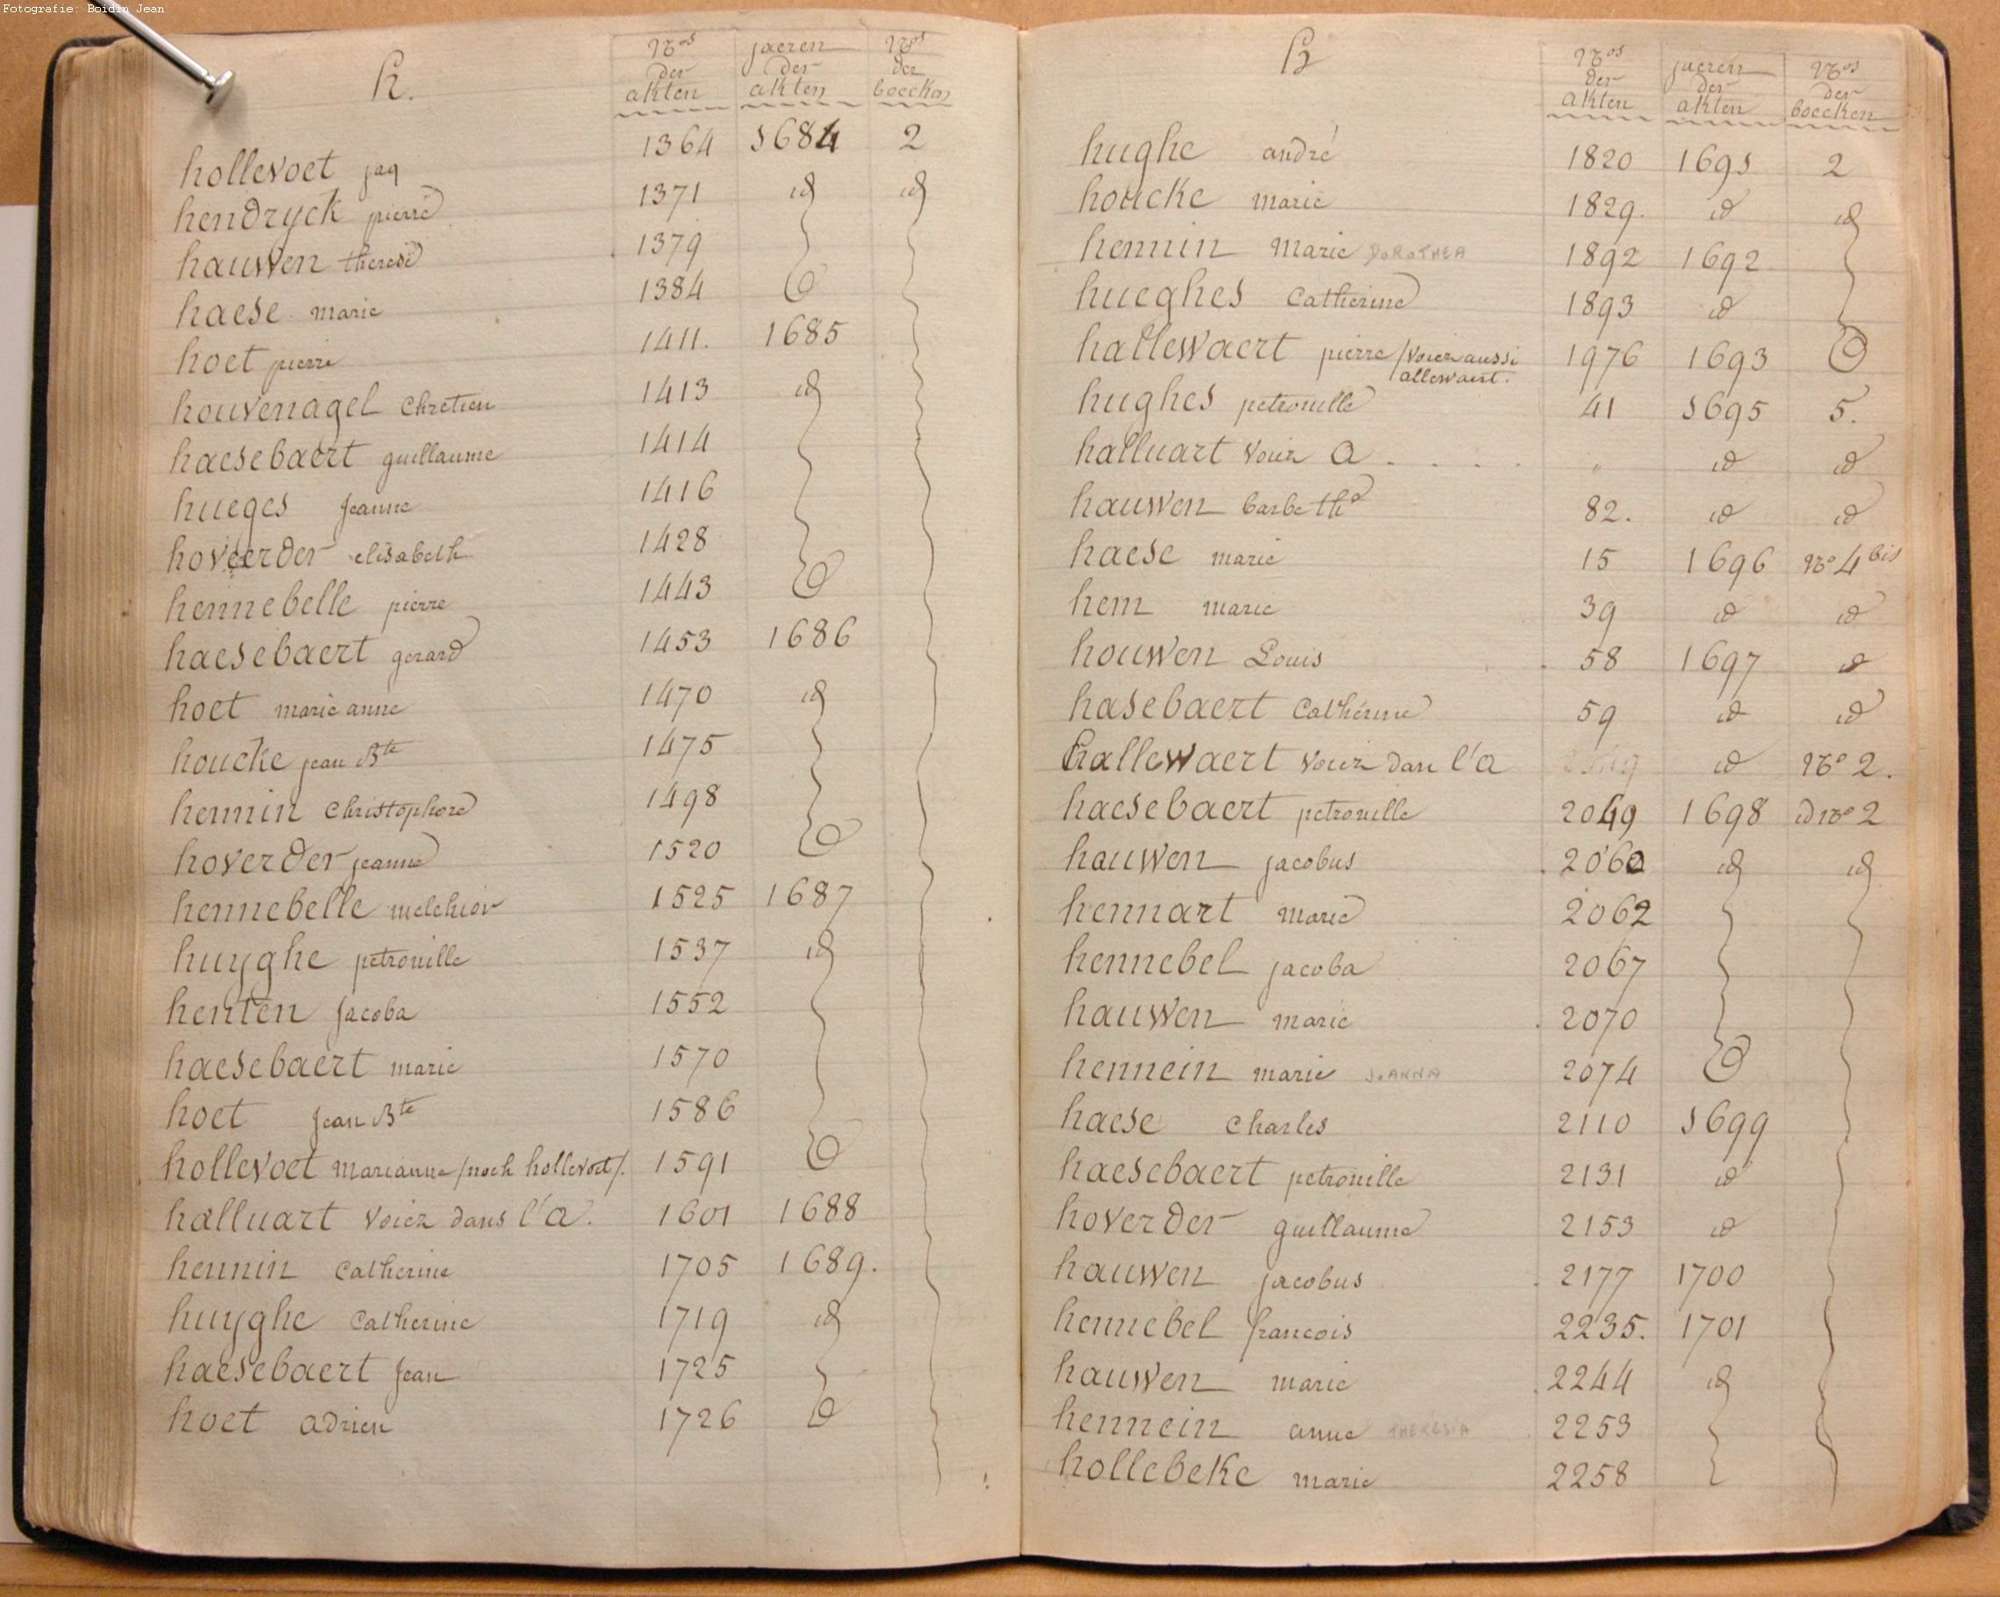 Fotografie: Boidin Jean
h.
Nos der akten jaeren der akten Nos der boecken
hollevoet jaq 1364 1684 2
hendryck pierre 1371 id id
hauwen therese 1379
haese marie 1384
hoet pierre 1411. 1685
houvenagel Chretien 1413 id
haesebaert guillaume 1414
hueges jeanne 1416
hoveerder elisabeth 1428
hennebelle pierre 1443
haesebaert gerard 1453 1686
hoet marie anne 1470 id
houcke jean Bte 1475
hennin Christophore 1498
hoverder jeanne 1520
hennebelle melchior 1525 1687
huyghe petronille 1537 id
henten jacoba 1552
haesebaert marie 1570
hoet jean Bte 1586
hollevoet marianne /noch hollevoet/. 1591
halluart voiez dans l'a. 1601 1688
hennin Catherine 1705 1689.
huyghe Catherine 1719 id
haesebaert jean 1725
hoet adrien 1726
h
Nos der akten jaeren der akten Nos der boecken
hughe andré 1820 1691 2
houcke marie 1829. id id
hennin marie DOROTHEA 1892 1692
hueghes Catherine 1893 id
hallewaert pierre /voiez aussi 1976 1693
allewaert.
hughes petronille 41 1695 5.
halluart voiez a . . . . " id id
hauwen barbe th 82. id id
haese marie 15 1696 No 4 bis
hem marie 39 id id
houwen Louis 58 1697 id
hasebaert Catherine 59 id id
hallewaert voiez dan l'a id No 2.
haesebaert petronille 2049 1698 id No 2
hauwen jacobus 2060 id id
hennart marie 2062
hennebel jacoba 2067
hauwen marie 2070
hennein marie JOANNA 2074
haese Charles 2110 1699
haesebaert petronille 2131 id
hoverder guillaume 2153 id
hauwen jacobus 2177 1700
hennebel francois 2235. 1701
hauwen marie 2244 id
hennein anne THERESIA 2253
hollebeke marie 2258